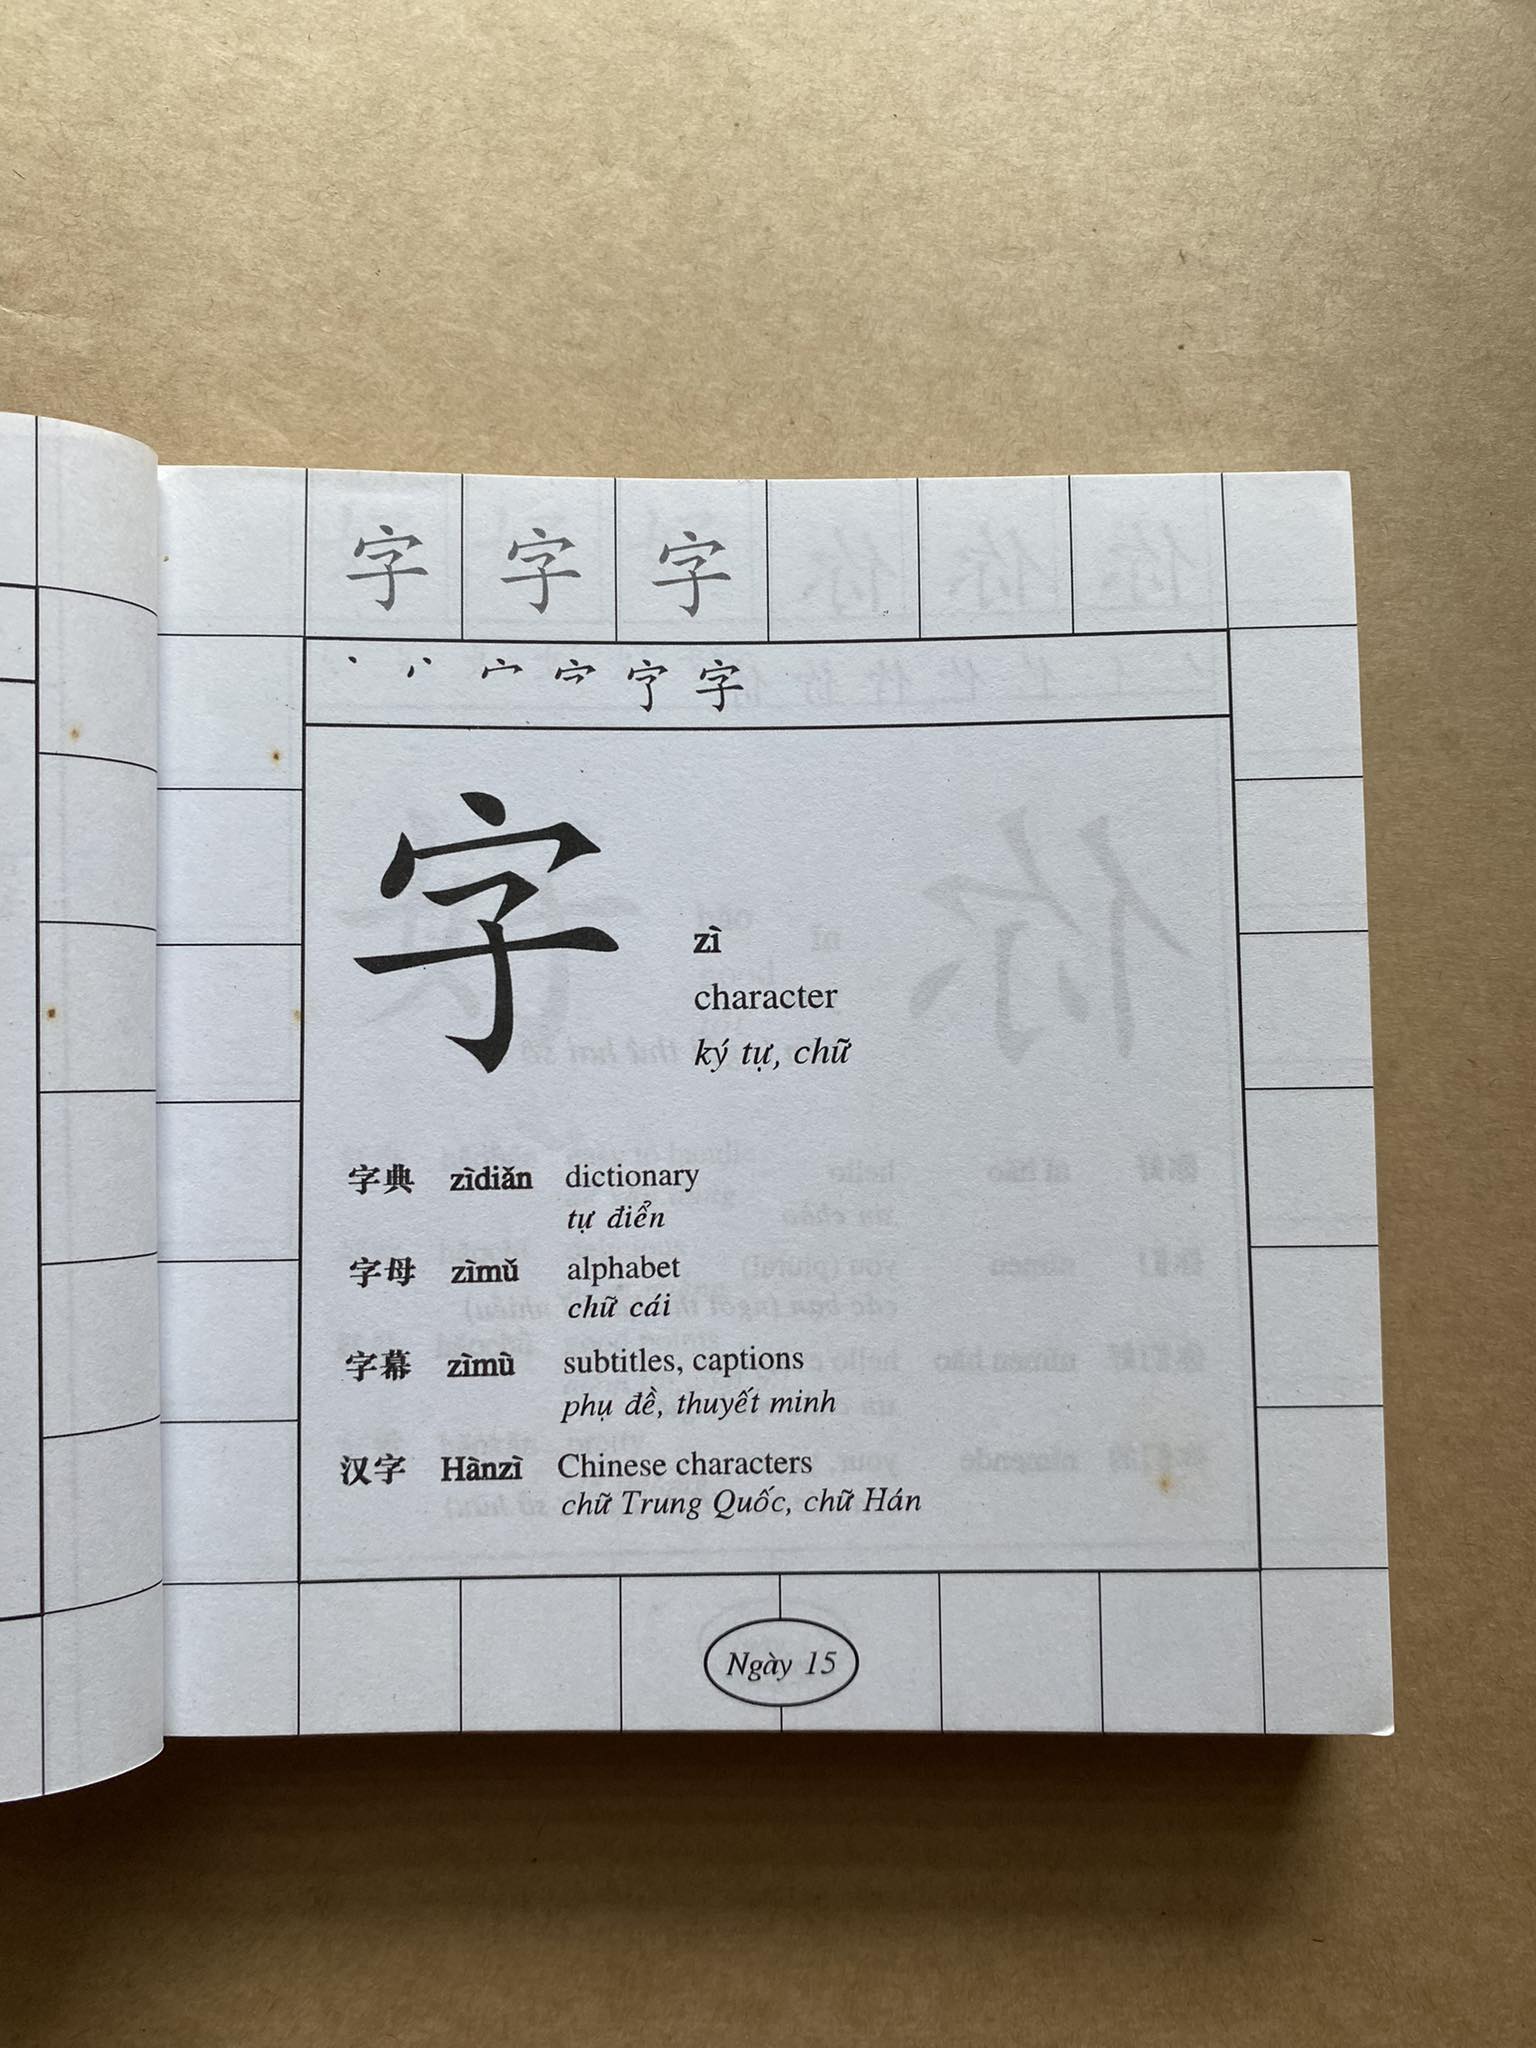 字 字 字
丶 丷 宀 字
字
zì
character
ký tự, chữ
字典 zìdiǎn dictionary
tự điển
字母 zìmǔ alphabet
chữ cái
字幕 zìmù subtitles, captions
phụ đề, thuyết minh
汉字 Hànzì Chinese characters
chữ Trung Quốc, chữ Hán
Ngày 15